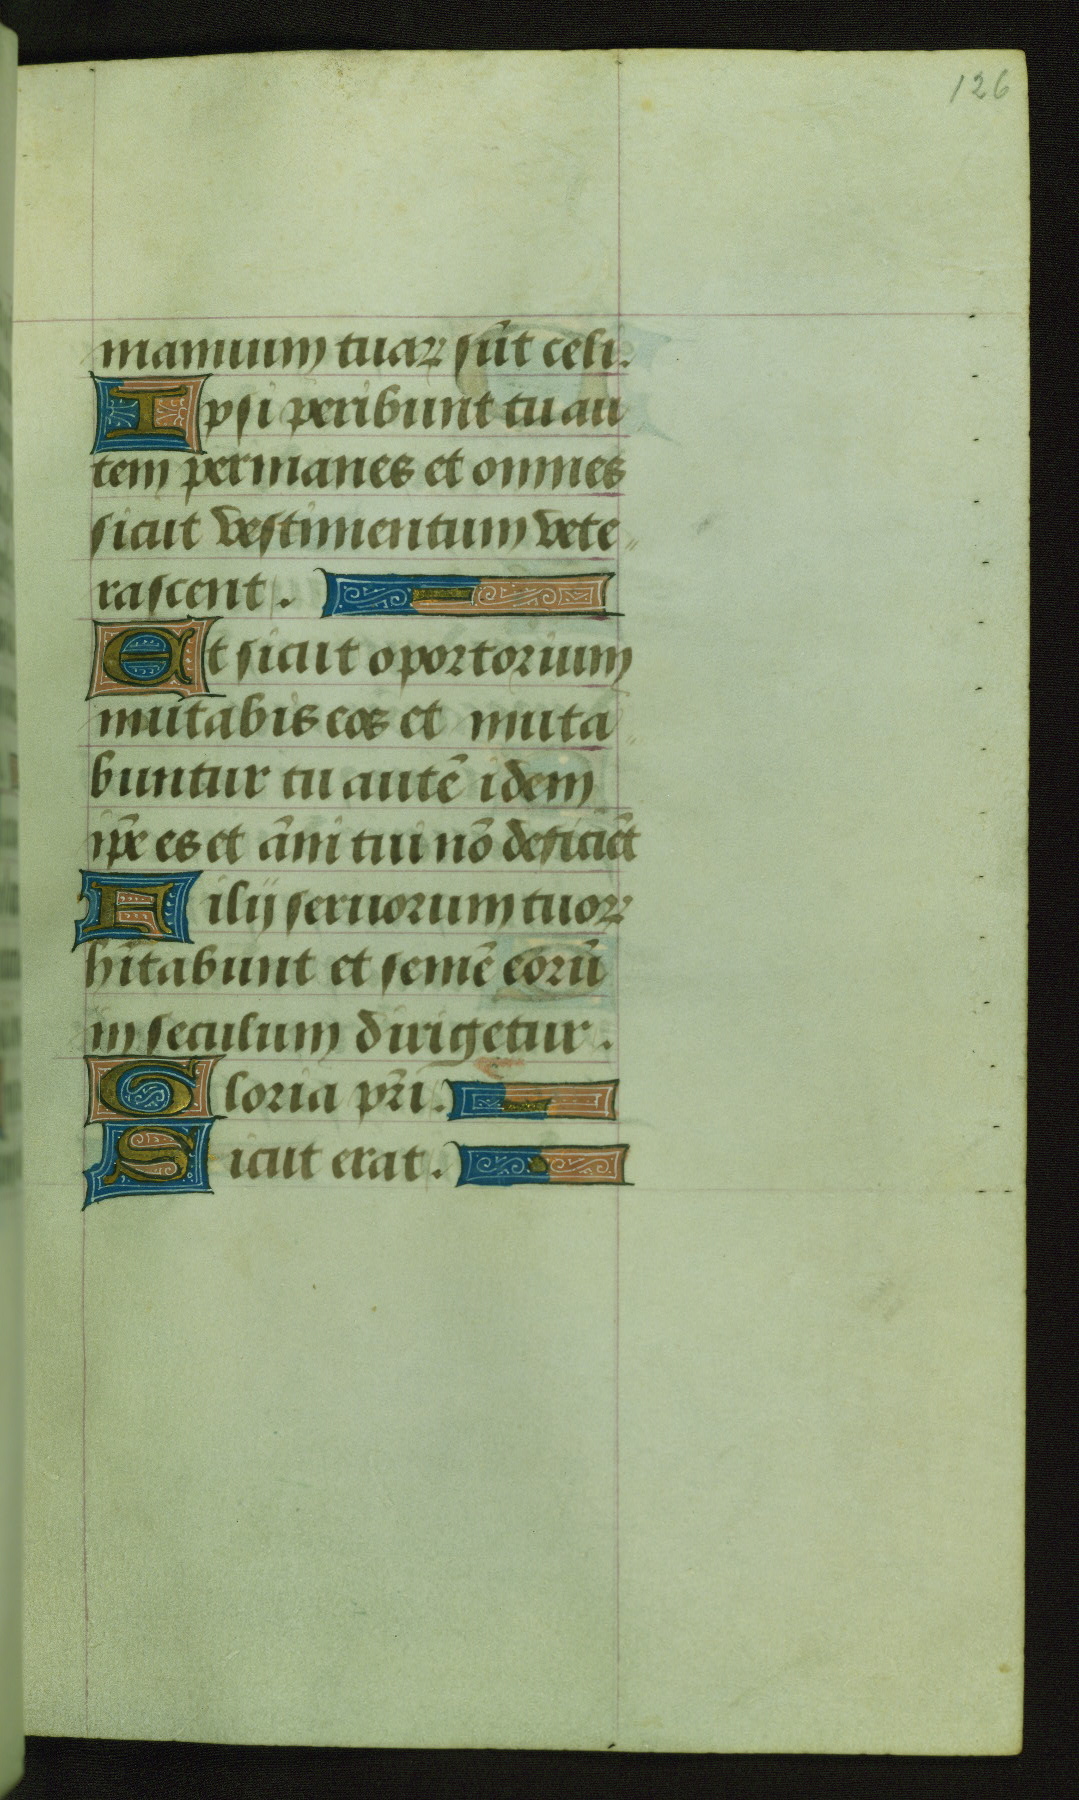 126
manuum tuaꝝ sūt celi.
Ipsi peribunt tu au
tem permanes et omnes
sicut vestimentum vete〃
rascent.
Et sicut oportorium
mutabis eos et muta
buntur tu autē idem
ip̄e es et āni tui nō deficiēt
Filij seruorum tuoꝝ
hītabunt et semē eorū
in seculum dirigetur.
Gloria pr̄i.
Sicut erat.